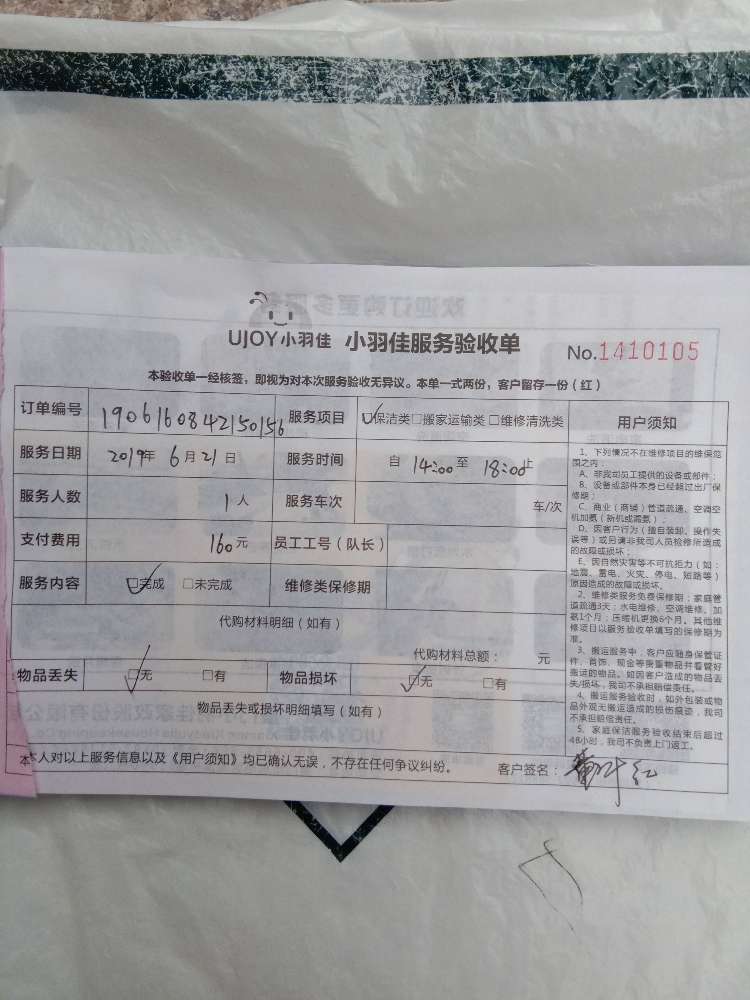 UJOY小羽佳 小羽佳服务验收单 No.1410105
本验收单一经核签，即视为对本次服务验收无异议。本单一式两份，客户留存一份（红）
订单编号 1906160842150156 服务项目 ☑保洁类□搬家运输类□维修清洗类
服务日期 2019年 6月21日 服务时间 自 14:00至 18:00止
服务人数 1人 服务车次 车/次
支付费用 160元 员工工号（队长）
服务内容 ☑完成 □未完成 维修类保修期
代购材料明细（如有）
代购材料总额： 元
物品丢失 ☑无 □有 物品损坏 ☑无 □有
物品丢失或损坏明细填写（如有）
本人对以上服务信息以及《用户须知》均已确认无误，不存在任何争议纠纷。 客户签名：
用户须知
1、下列情况不在维修项目的维保范
围之内：
A、非我司员工提供的设备或部件；
B、设备或部件本身已经超过出厂保
修期；
C、商业（商铺）管道疏通、空调空
机加氟（新机或漏氟）；
D、因客户行为（擅自装卸、操作失
误等）或另请非我司人员检修所造成
的故障或损坏；
E、因自然灾害等不可抗拒力（如：
地震、雷电、火灾、停电、短路等）
原因造成的故障或损坏。
2、维修类服务免费保修期：家庭管
道疏通3天；水电维修、空调维修、加
氟1个月；压缩机更换6个月。其他维
修项目以服务验收单填写的保修期为
准。
3、搬运服务中，客户应随身保管证
件、首饰、现金等贵重物品并看管好
搬运的物品。如因客户造成的物品丢
失/损坏，我司不承担赔偿责任。
4、搬运服务验收时，如外包装或物
品外观无搬运造成的损伤痕迹，我司
不承担赔偿责任。
5、家庭保洁服务验收结束后超过
48小时，我司不负责上门返工。